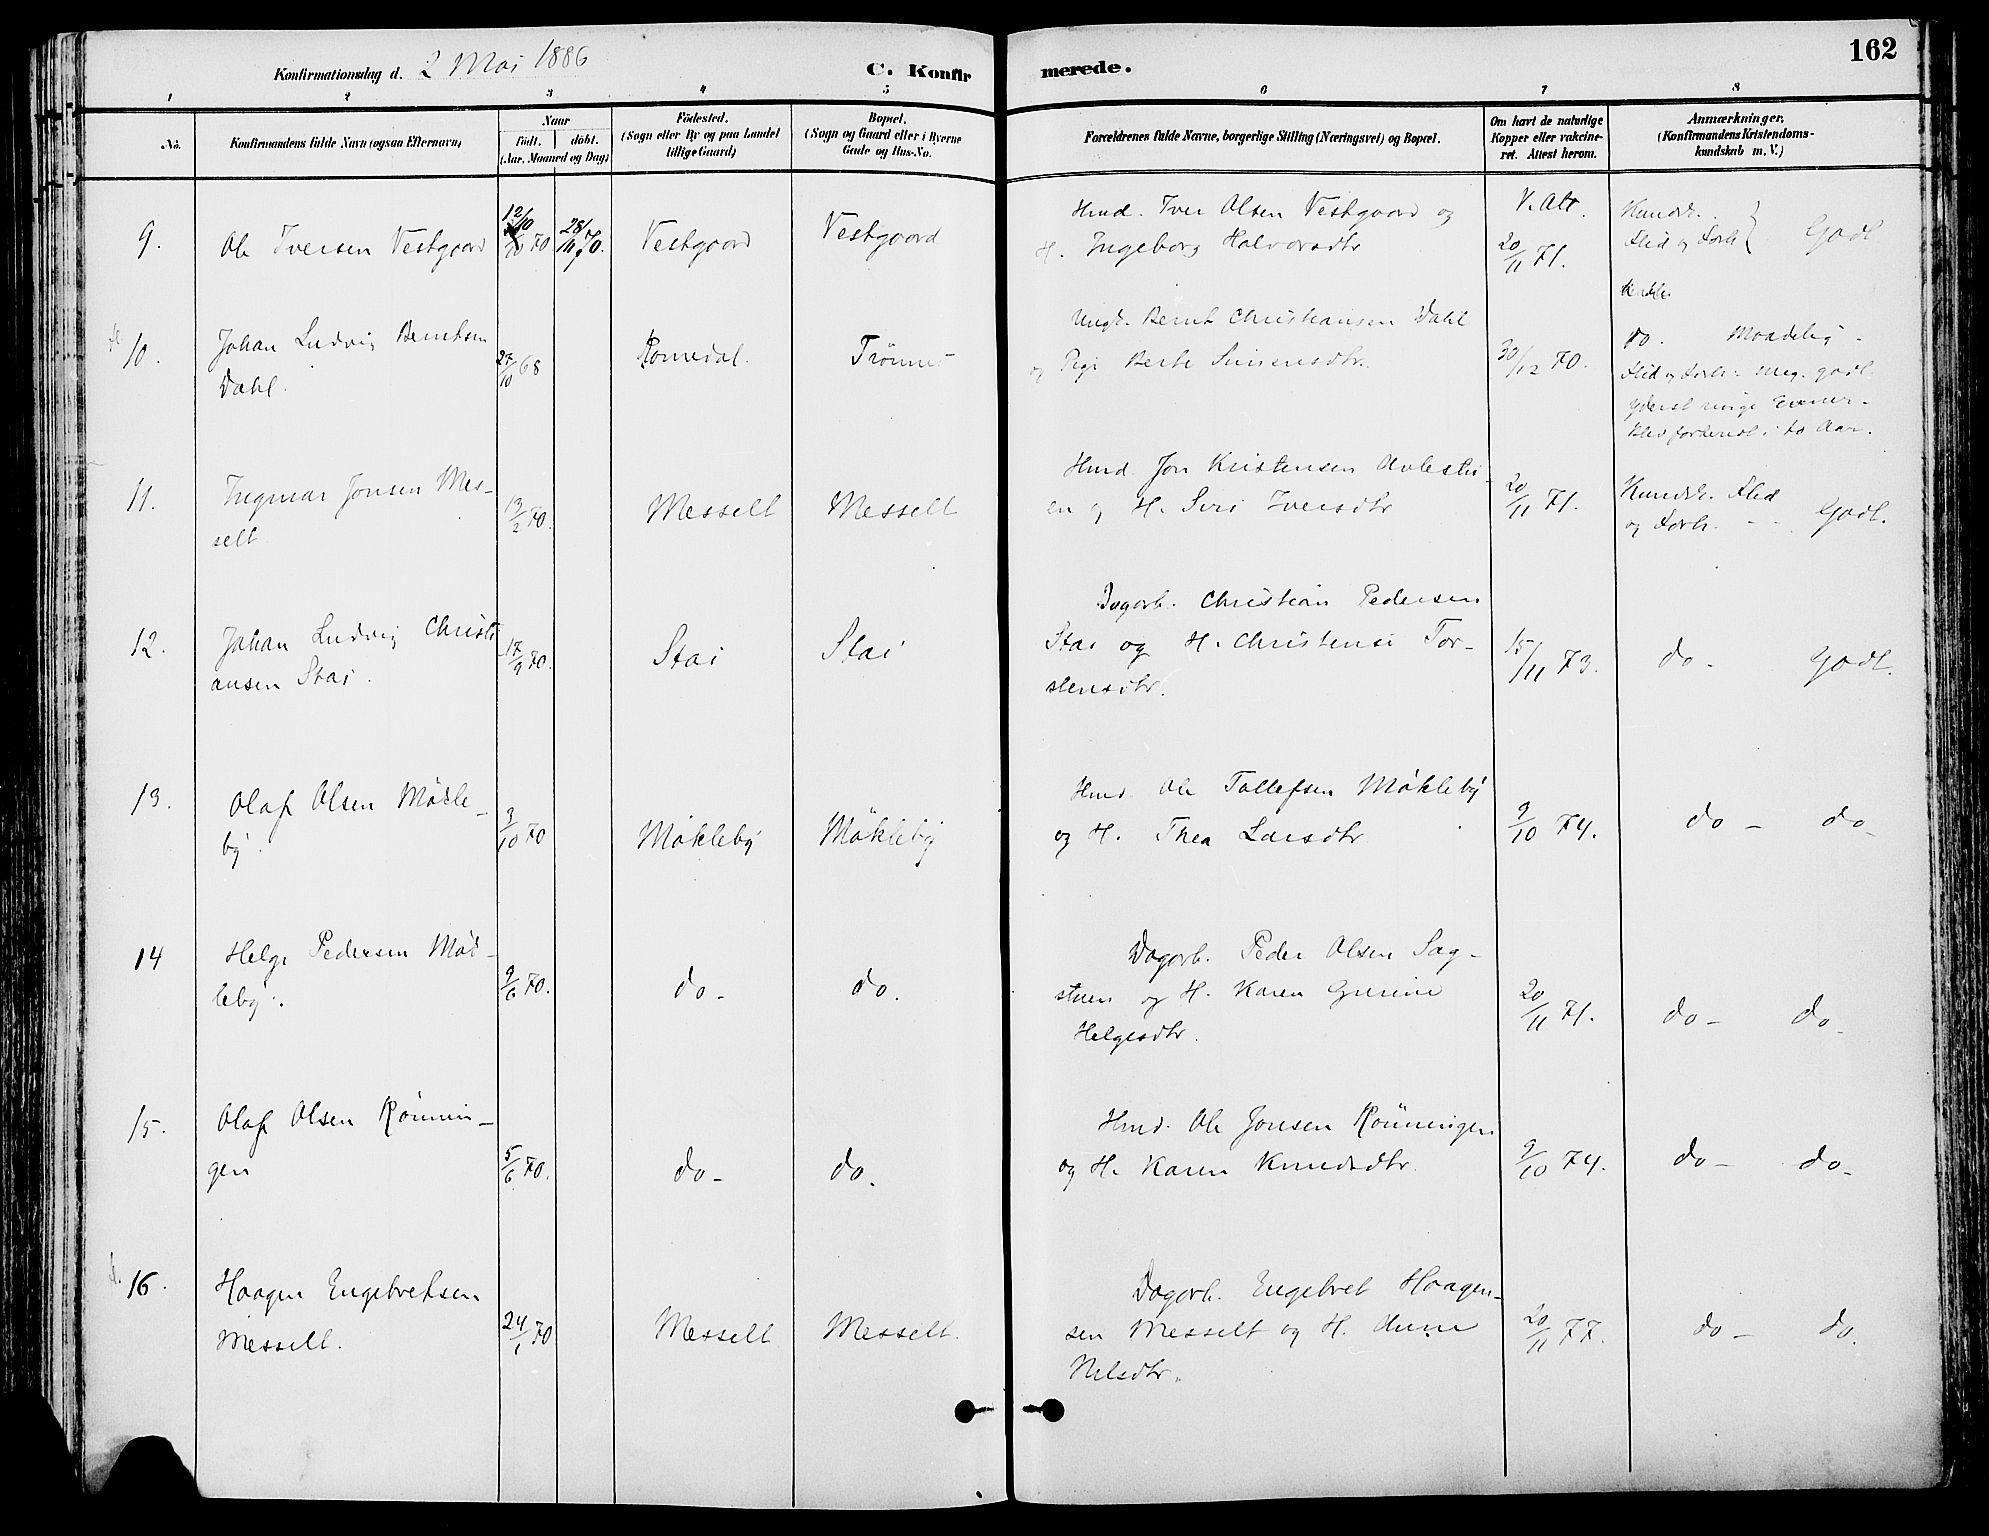 Konfirmationsdag d. 2 Mai 1886
C. Konfirmerede.
162
1 2 3 4 5 6 7 8
No.
Konfirmandens fulde Navn (ogsaa Efternavn)
Naar
födt. döbt.
(Aar, Maaned og Dag)
Födested.
(Sogn eller By og paa Landet
tillige Gaard)
Bopæl.
(Sogn og Gaard eller i Byerne
Gade og Hus-No.
Forældrenes fulde Navne, borgerlige Stilling (Næringsvei) og Bopæl.
Om havt de naturlige
Kopper eller vakcine-
ret. Attest herom.
Anmærkninger.
(Konfirmandens Kristendoms-
kundskab m. V.)
9. Ole Iversen Vestgaard
12/10 70 28/10 70.
Vestgaard
Vestgaard
Hmd. Iver Olsen Vestgaard og
H. Ingeborg Halvorsdtr
V. Att.
20/11 71.
Kundsk.
Flid og Forh. } Godt
10. Johan Ludvig Berntsen
Dahl.
27/10 68
Romedal.
Trönnes
Ungk. Bernt Christiansen Dahl
og Pige Berte Simensdtr.
30/12 70.
do. Maadelig.
Flid og Forh. meg. godt.
Yderst ringe Evner.
Blev forberedt i to Aar.
11. Ingmar Jonsen Mes-
selt
13/2 70.
Messelt
Messelt
Hmd. Jon Kristensen
en og H. Siri Iversdtr
20/11 71.
Kundsk. Flid
og Forh. - - Godt.
12. Johan Ludvig Christi
ansen Stai.
17/9 70.
Stai
Stai
Dagarb. Christian Pedersen
Stai og H. Christense Tor-
stensdtr.
15/11 73.
do - Godt.
13. Olaf Olsen Mökle-
by.
3/10 70
Mökleby
Mökleby
Hmd. Ole Tollefsen Mökleby
og H. Thea Larsdtr
9/10 74.
do - do -
14 Helge Pedersen Mök-
leby.
9/6 70.
do -
do.
Dagarb. Peder Olsen Sag-
stuen og H. Karen Gurine
Helgesdtr.
20/11 71.
do - do -
15. Olaf Olsen Rönnin-
gen
5/6 70.
do -
do.
Hmd. Ole Jonsen Rönningen
og H. Karen Knudsdtr.
9/10 74.
do - do -
16. Haagen Engebretsen
Messelt.
24/1 70
Messelt
Messelt.
Dagarb. Engebret Haagen-
sen Messelt og H. Anne
Nilsdtr.
20/11 77.
do - do.